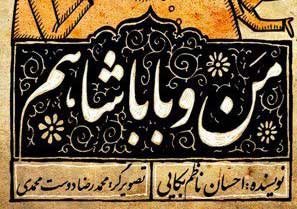 من و بابا شاهم
نویسنده: احسان ناظم بکایی
تصویرگر: محمدرضا دوست محمدی